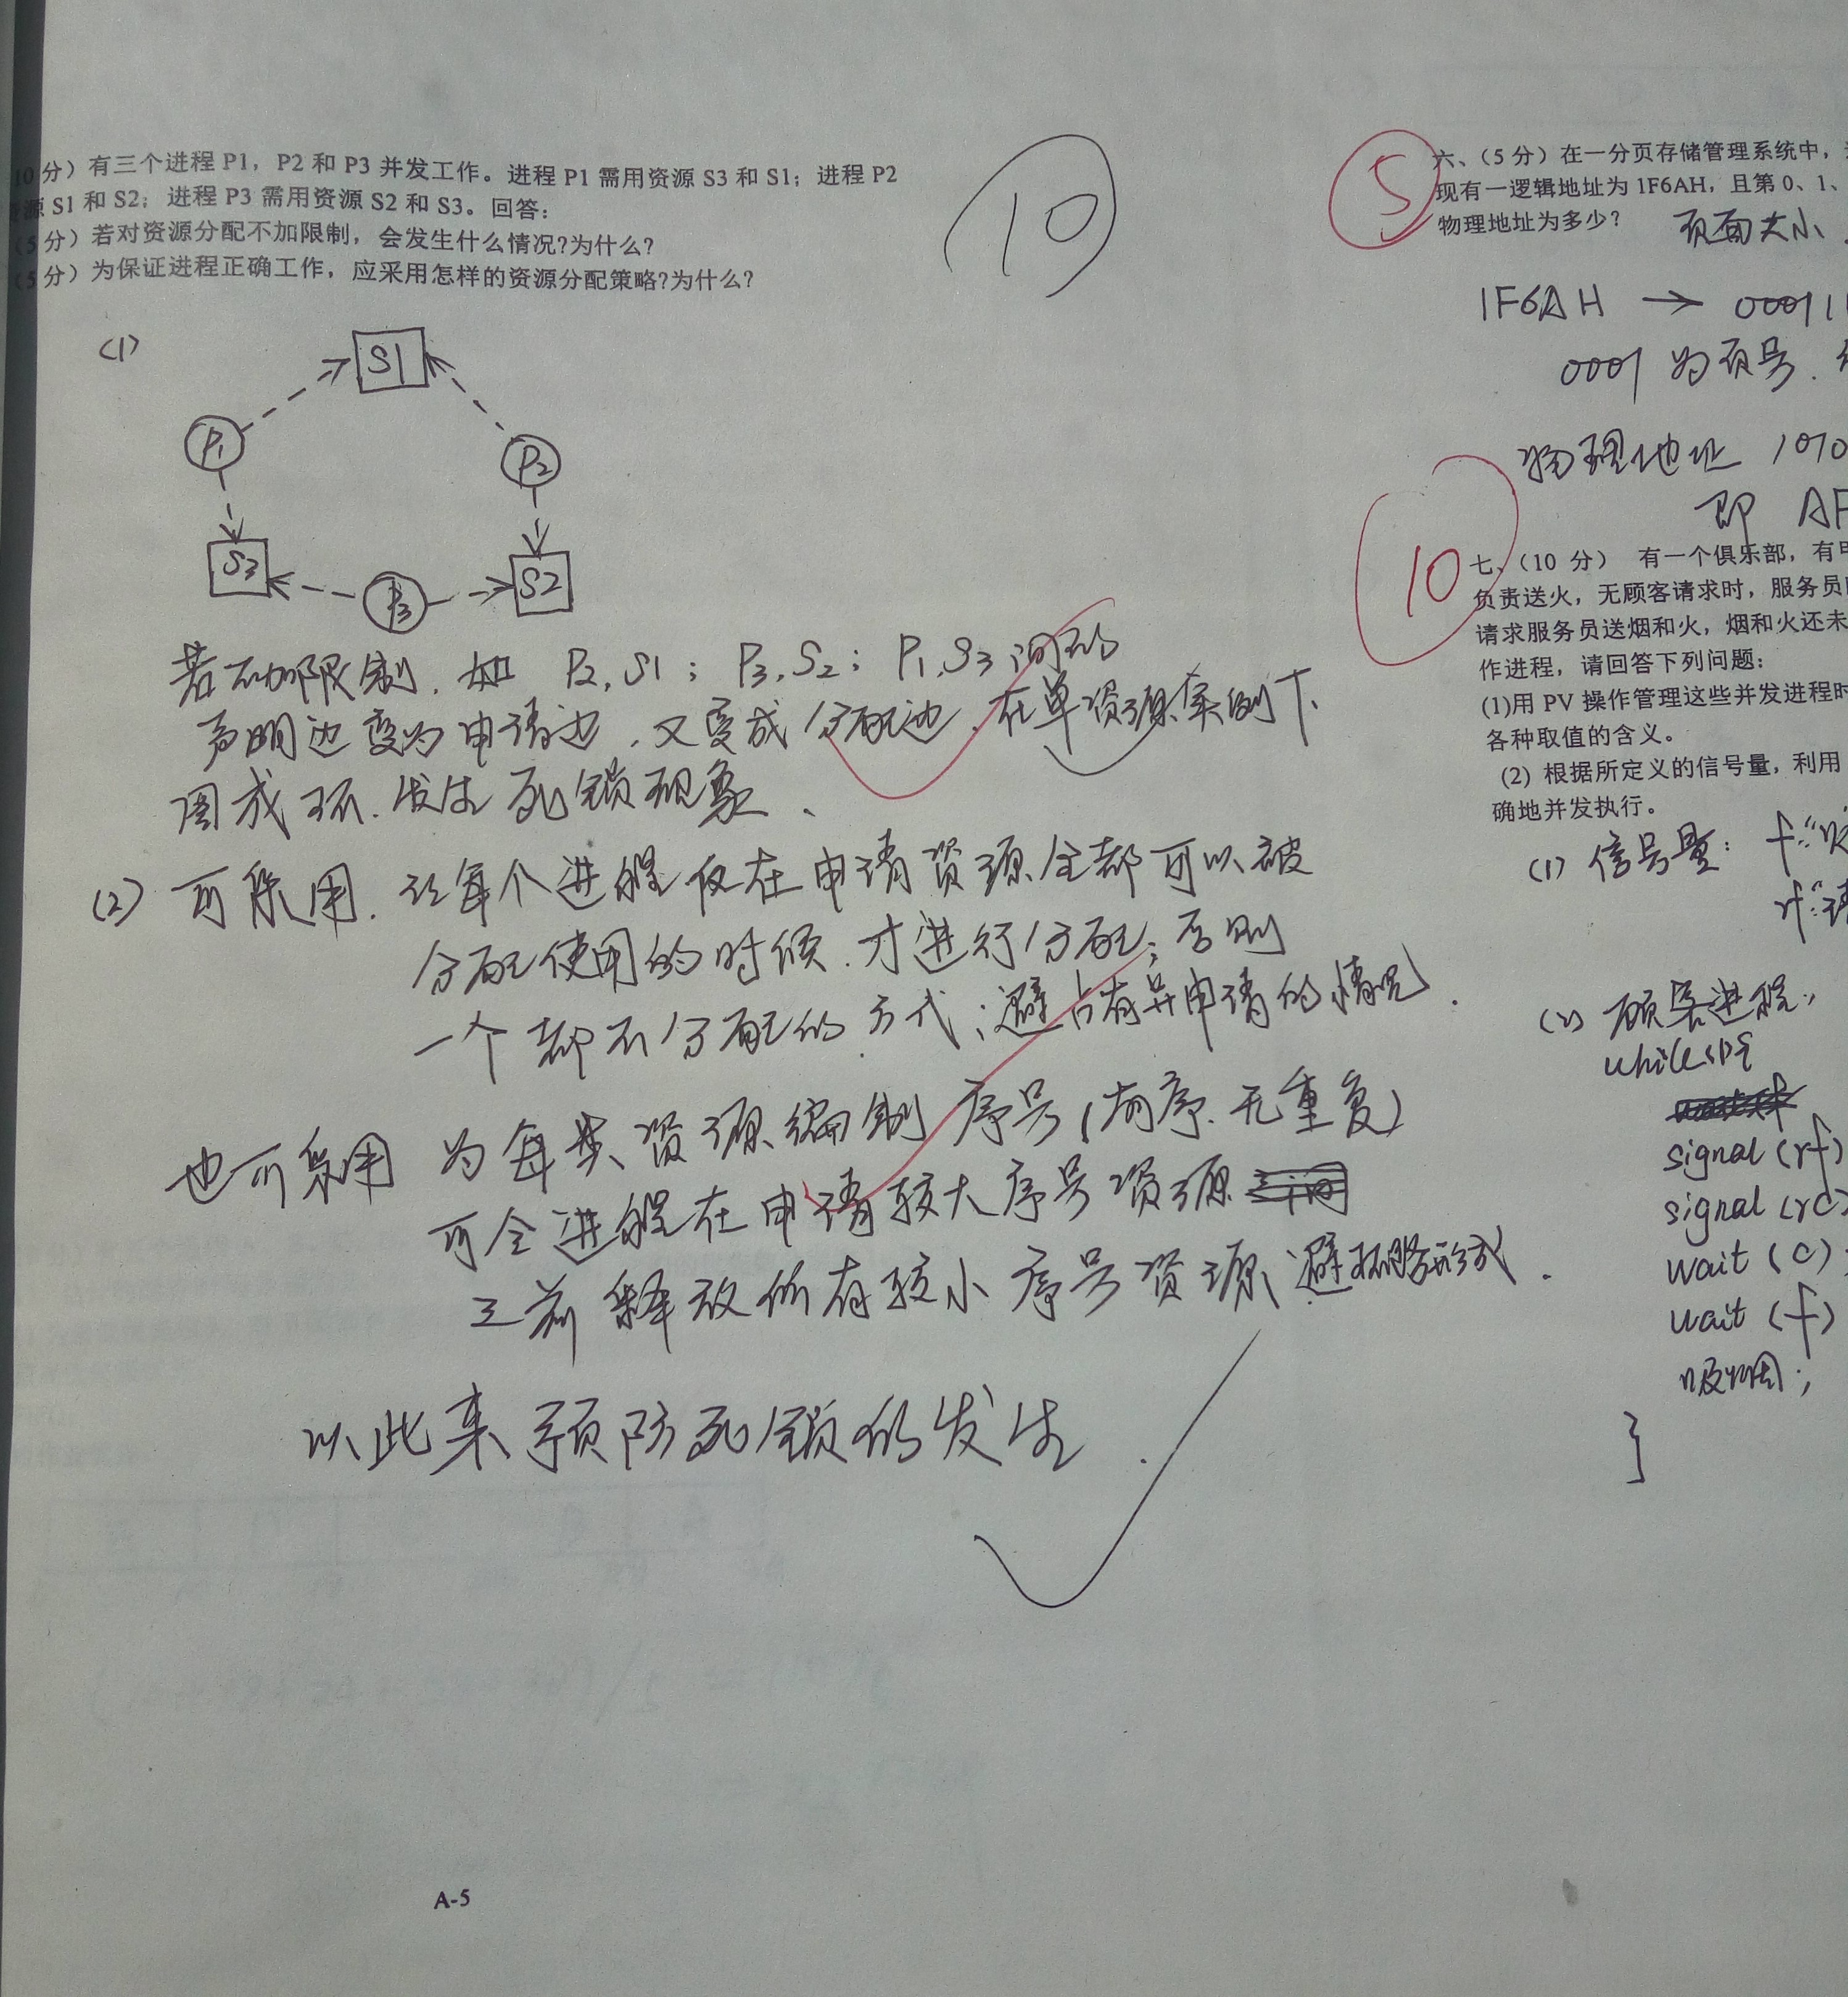 10分）有三个进程 P1，P2 和 P3 并发工作。进程 P1 需用资源 S3 和 S1；进程 P2
源 S1 和 S2；进程 P3 需用资源 S2 和 S3。回答：
（5分）若对资源分配不加限制，会发生什么情况?为什么?
（5分）为保证进程正确工作，应采用怎样的资源分配策略?为什么?
10
(1)
S1
P1
P2
S3
P3
S2
若不加限制，如 P2,S1；P3,S2；P1,S3间的
声明边变为申请边，又变成分配边，在单资源实例下
围成环，发生死锁现象、
(2) 可采用，让每个进程仅在申请资源全部可以被
分配使用的时候，才进行分配；否则
一个都不分配的方式；避占有并申请的情况．
也可采用 为每类资源编制序号(有序、无重复)
可令进程在申请较大序号资源
之前释放所有较小序号资源，避环路形成．
以此来预防死锁的发生．
A-5
5
六、（5 分）在一分页存储管理系统中，
现有一逻辑地址为 1F6AH，且第 0、1、
物理地址为多少?
页面大小
1F6AH → 00011
0001 为页号．
物理地址 1010
即 AF
10
七、（10 分） 有一个俱乐部，有
负责送火，无顾客请求时，服务员
请求服务员送烟和火，烟和火还未
作进程，请回答下列问题：
(1)用 PV 操作管理这些并发进程时
各种取值的含义。
(2) 根据所定义的信号量，利用
确地并发执行。
(1) 信号量：f:"
rf:"请
(2) 顾客进程：
while(1){
signal(rf)
signal(rc)
wait(c)
wait(f)
吸烟；
}